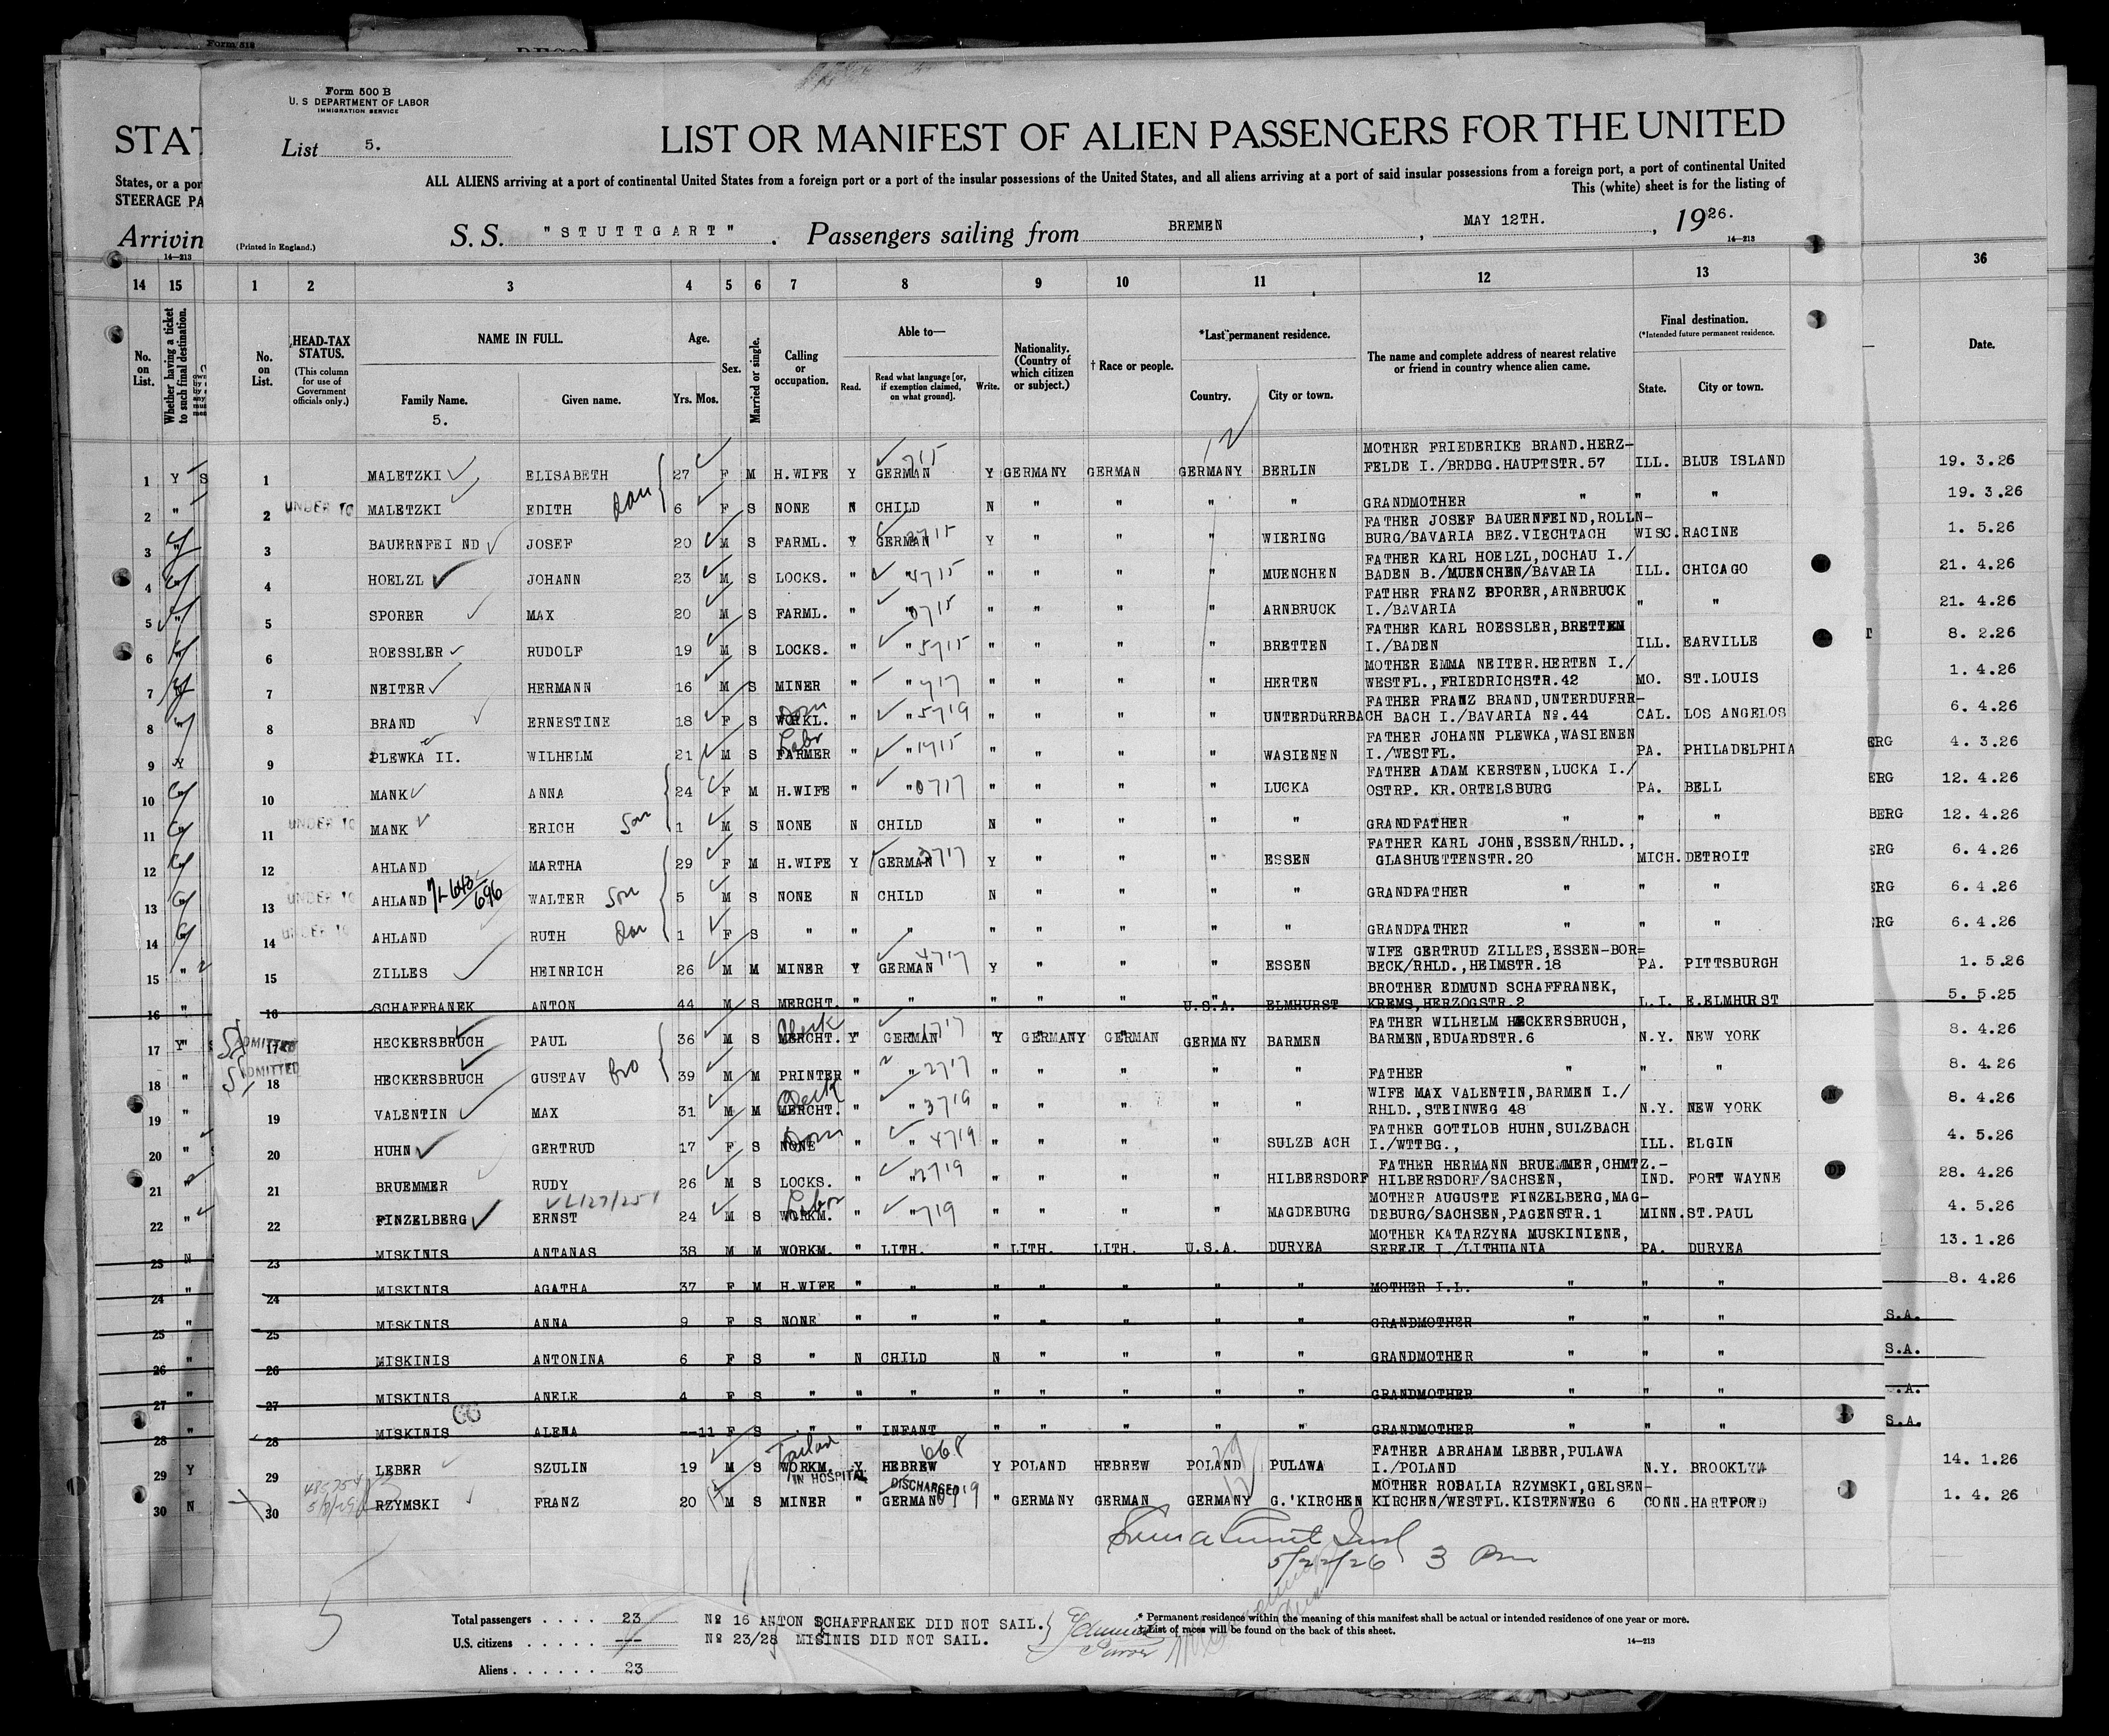 Form 500 B
U. S DEPARTMENT OF LABOR
IMMIGRATION SERVICE
List 5.
LIST OR MANIFEST OF ALIEN PASSENGERS FOR THE UNITED
ALL ALIENS arriving at a port of continental United States from a foreign port or a port of the insular possessions of the United States, and all aliens arriving at a port of said insular possessions from a foreign port, a port of continental United
This (white) sheet is for the listing of
STAT
States, or a por
STEERAGE PA
Arrivin
(Printed in England.)
S. S. "STUTTGART". Passengers sailing from BREMEN, MAY 12TH., 1926.
14—213 14—213
14 15 1 2 3 4 5 6 7 8 9 10 11 12 13 36
No. on List.
Whether having a ticket to such final destination.
No. on List.
HEAD-TAX STATUS.
(This column for use of Government officials only.)
NAME IN FULL.
Family Name. Given name.
5.
Age.
Yrs. Mos.
Sex.
Married or single.
Calling or occupation.
Able to—
Read. Read what language [or, if exemption claimed, on what ground]. Write.
Nationality. (Country of which citizen or subject.)
† Race or people.
*Last permanent residence.
Country. City or town.
The name and complete address of nearest relative or friend in country whence alien came.
Final destination.
(*Intended future permanent residence.
State. City or town.
Date.
MOTHER FRIEDERIKE BRAND.HERZ-
1 Y S 1 MALETZKI ELISABETH 27 F M H.WIFE Y GERMAN Y GERMANY GERMAN GERMANY BERLIN FELDE I./BRDBG.HAUPTSTR.57 ILL. BLUE ISLAND 19. 3.26
2 " 2 UNDER 10 MALETZKI EDITH dau 6 F S NONE N CHILD N " " " " GRANDMOTHER " " " 19. 3.26
FATHER JOSEF BAUERNFEIND,ROLLN-
3 " 3 BAUERNFEI ND JOSEF 20 M S FARML. Y GERMAN Y " " " WIERING BURG/BAVARIA BEZ.VIECHTACH WISC. RACINE 1. 5.26
FATHER KARL HOELZL,DOCHAU I./
4 4 HOELZL JOHANN 23 M S LOCKS. " " " " " " MUENCHEN BADEN B./MUENCHEN/BAVARIA ILL. CHICAGO 21. 4.26
FATHER FRANZ SPORER,ARNBRUCK
5 " 5 SPORER MAX 20 M S FARML. " " " " " " ARNBRUCK I./BAVARIA " " 21. 4.26
FATHER KARL ROESSLER,BRETTEN
6 " 6 ROESSLER RUDOLF 19 M S LOCKS. " " " " " " BRETTEN I./BADEN ILL. EARVILLE 8. 2.26
MOTHER EMMA NEITER.HERTEN I./
7 7 NEITER HERMANN 16 M S MINER " " " " " " HERTEN WESTFL.,FRIEDRICHSTR.42 MO. ST.LOUIS 1. 4.26
FATHER FRANZ BRAND,UNTERDUERR-
8 " 8 BRAND ERNESTINE 18 F S WORKL. Dom " " " " " " UNTERDüRRBACH BACH I./BAVARIA No.44 CAL. LOS ANGELOS 6. 4.26
FATHER JOHANN PLEWKA,WASIENEN
9 Y 9 PLEWKA II. WILHELM 21 M S FARMER Labr " " " " " " WASIENEN I./WESTFL. PA. PHILADELPHIA ERG 4. 3.26
FATHER ADAM KERSTEN,LUCKA I./
10 10 MANK ANNA 24 F M H.WIFE " " " " " " LUCKA OSTRP. KR.ORTELSBURG PA. BELL ERG 12. 4.26
11 11 UNDER 10 MANK ERICH Son 1 M S NONE N CHILD N " " " " GRANDFATHER " " " BERG 12. 4.26
FATHER KARL JOHN,ESSEN/RHLD.,
12 12 AHLAND MARTHA 29 F M H.WIFE Y GERMAN Y " " " ESSEN GLASHUETTENSTR.20 MICH. DETROIT ERG 6. 4.26
13 13 UNDER 10 AHLAND WALTER Son 5 M S NONE N CHILD N " " " " GRANDFATHER " " " ERG 6. 4.26
14 14 UNDER 10 AHLAND RUTH dau 1 F S " " " " " " " " GRANDFATHER " " " ERG 6. 4.26
WIFE GERTRUD ZILLES,ESSEN-BOR=
15 " 15 ZILLES HEINRICH 26 M M MINER Y GERMAN Y " " " ESSEN BECK/RHLD.,HEIMSTR.18 PA. PITTSBURGH 1. 5.26
BROTHER EDMUND SCHAFFRANEK,
16 " 16 SCHAFFRANEK ANTON 44 M S MERCHT. " " " " " U.S.A. ELMHURST KREMS,HERZOGSTR.2 L.I. E.ELMHURST 5. 5.25
FATHER WILHELM HECKERSBRUCH,
17 Y 17 ADMITTED HECKERSBRUCH PAUL 36 M S MERCHT. Clerk Y GERMAN Y GERMANY GERMAN GERMANY BARMEN BARMEN,EDUARDSTR.6 N.Y. NEW YORK 8. 4.26
18 " 18 ADMITTED HECKERSBRUCH GUSTAV bro 39 M M PRINTER " " " " " " " FATHER " " " 8. 4.26
WIFE MAX VALENTIN,BARMEN I./
19 " 19 VALENTIN MAX 31 M M MERCHT. Clerk " " " " " " " RHLD.,STEINWEG 48 N.Y. NEW YORK 8. 4.26
FATHER GOTTLOB HUHN,SULZBACH
20 " 20 HUHN GERTRUD 17 F S NONE Dom " " " " " " SULZB ACH I./WTTBG., ILL. ELGIN 4. 5.26
FATHER HERMANN BRUEMMER,CHMTZ.-
21 " 21 BRUEMMER RUDY 26 M S LOCKS. " " " " " " HILBERSDORF HILBERSDORF/SACHSEN, IND. FORT WAYNE 28. 4.26
MOTHER AUGUSTE FINZELBERG,MAG-
22 " 22 FINZELBERG ERNST 24 M S WORKM. Labor " " " " " " MAGDEBURG DEBURG/SACHSEN,PAGENSTR.1 MINN. ST.PAUL 4. 5.26
MOTHER KATARZYNA MUSKINIENE,
23 N 23 MISKINIS ANTANAS 38 M M WORKM. " LITH. " LITH. LITH. U.S.A. DURYEA SEREJE I./LITHUANIA PA. DURYEA 13. 1.26
24 " 24 MISKINIS AGATHA 37 F M H.WIFE " " " " " " " MOTHER I.L. " " " 8. 4.26
25 " 25 MISKINIS ANNA 9 F S NONE " " " " " " " GRANDMOTHER " " " S.A.
26 " 26 MISKINIS ANTONINA 6 F S " N CHILD N " " " " GRANDMOTHER " " " S.A.
27 " 27 MISKINIS ANELE 4 F S " " " " " " " " GRANDMOTHER " " " S.A.
28 " 28 MISKINIS ALENA --11 F S " " INFANT " " " " " GRANDMOTHER " " " S.A.
FATHER ABRAHAM LEBER,PULAWA
29 Y 29 LEBER SZULIN 19 M S WORKM. Tailor Y HEBREW 668 Y POLAND HEBREW POLAND PULAWA I./POLAND N.Y. BROOKLYN 14. 1.26
IN HOSPITAL DISCHARGED
MOTHER ROBALIA RZYMSKI,GELSEN-
30 N 30 RZYMSKI FRANZ 20 M S MINER " GERMAN " GERMANY GERMAN GERMANY G.'KIRCHEN KIRCHEN/WESTFL.KISTENWEG 6 CONN. HARTFORD 1. 4. 26
5/22/26 3 Pm
Total passengers . . . . 23
U.S. citizens . . . . . ---
Aliens . . . . . . 23
No 16 ANTON SCHAFFRANEK DID NOT SAIL.
No 23/28 MISINIS DID NOT SAIL.
* Permanent residence within the meaning of this manifest shall be actual or intended residence of one year or more.
† List of races will be found on the back of this sheet.
14—213